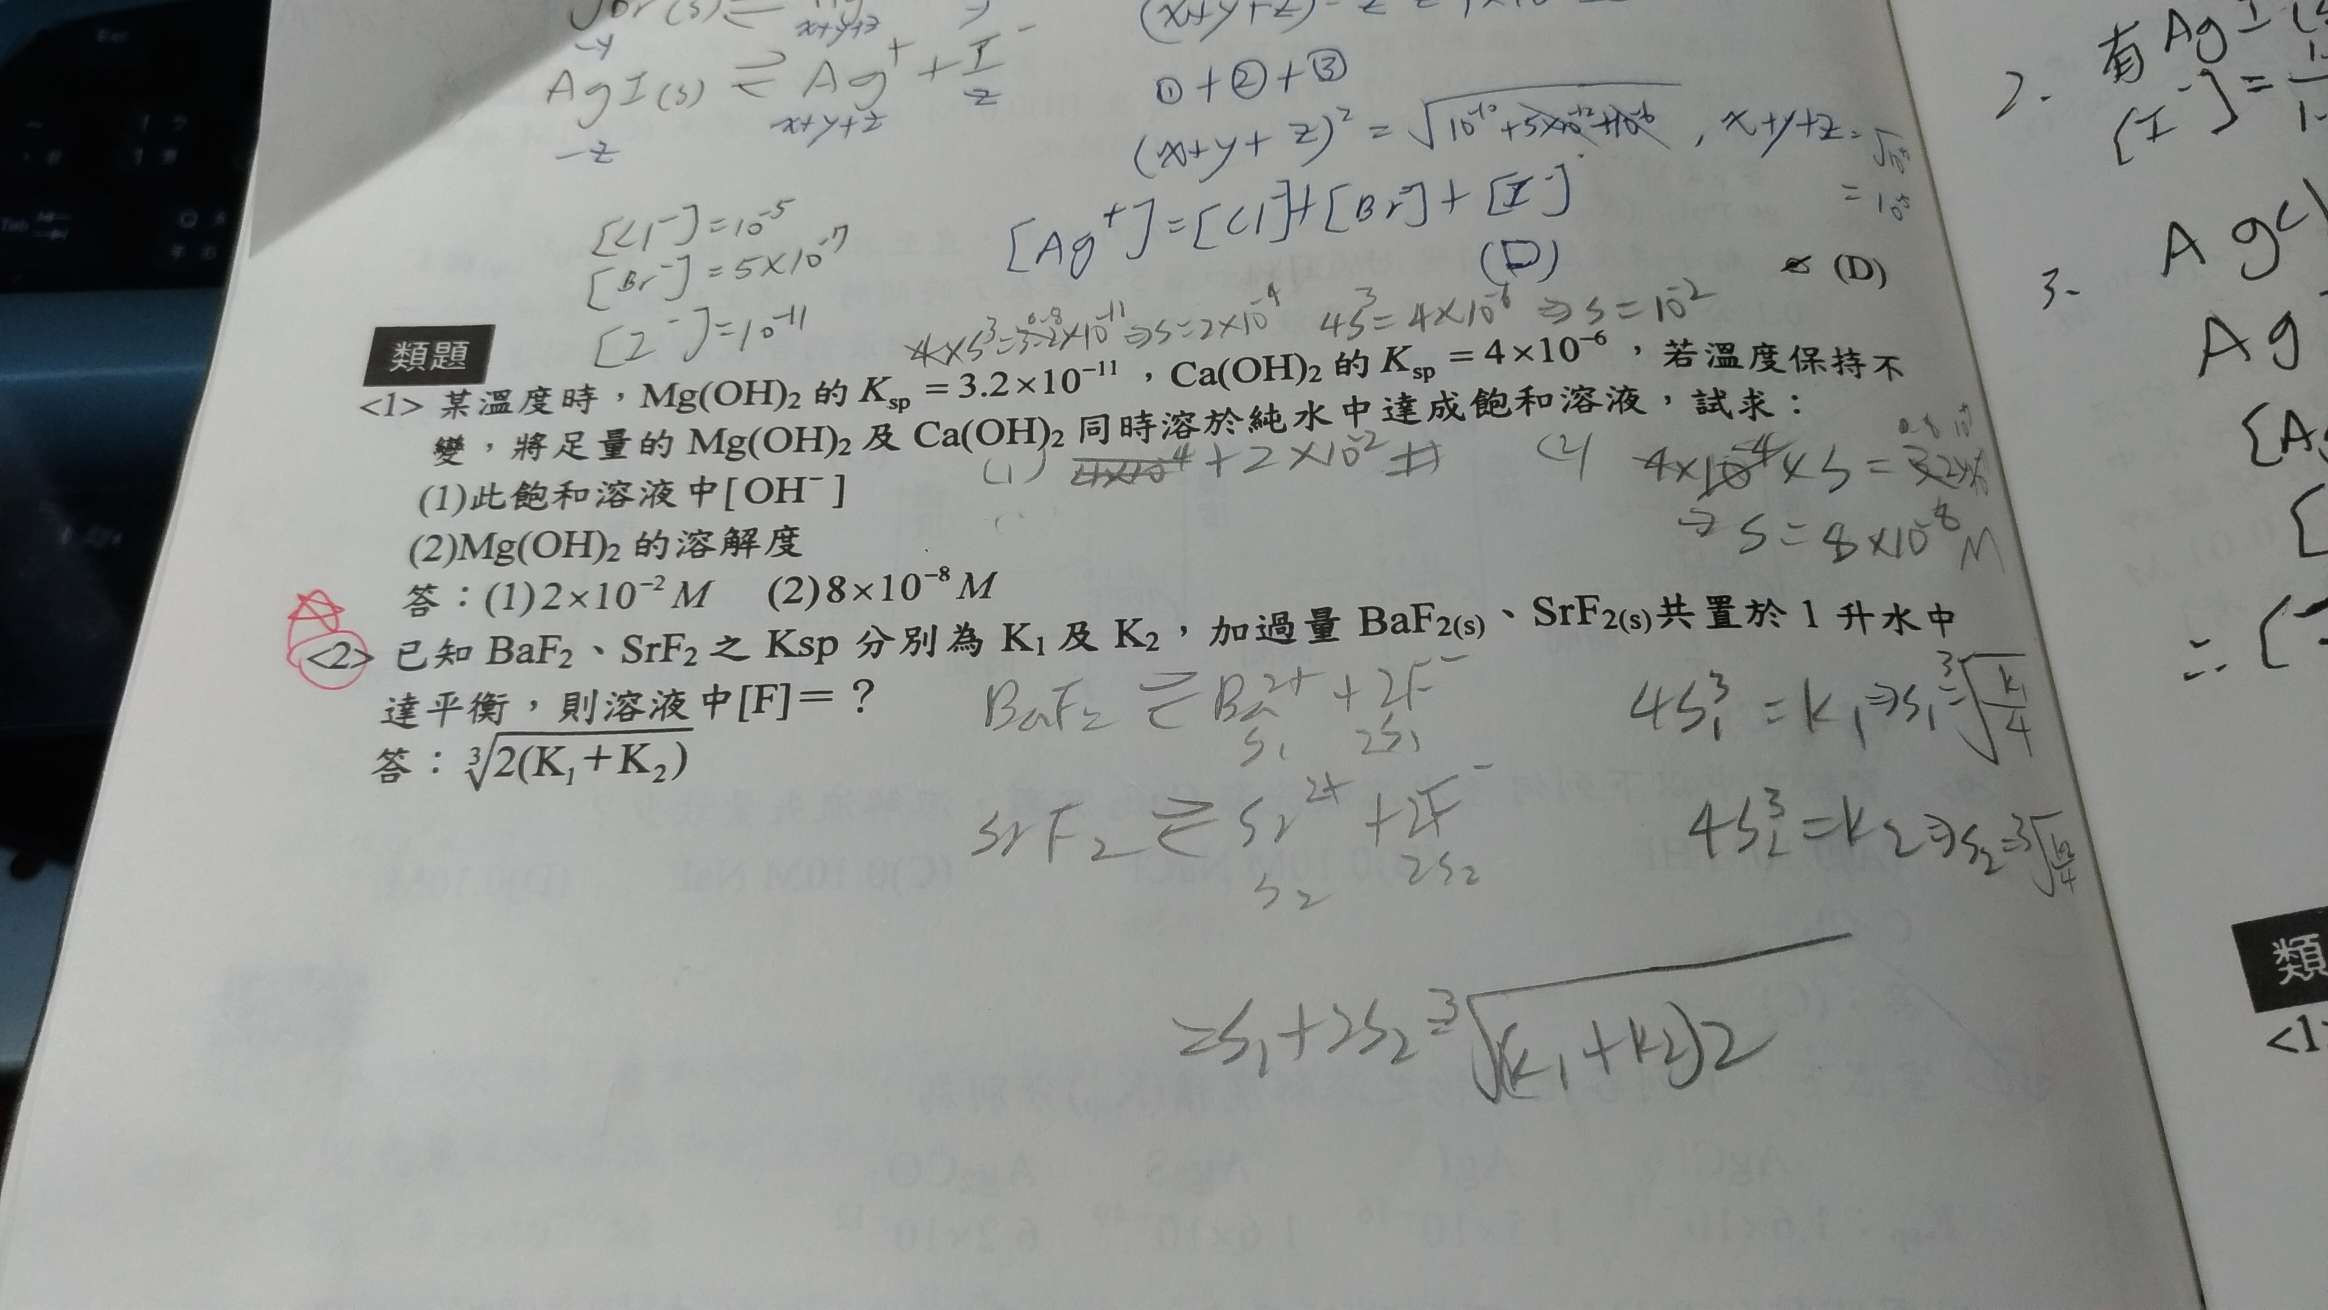 (x+y+z)
x+y+z
-y
AgI(s) ⇌ Ag⁺ + I⁻
-z x+y+z z
①+②+③
(x+y+z)² = √10⁻¹⁰+5×10⁻¹²+10⁻¹⁶ , x+y+z=
[Cl⁻]=10⁻⁵
[Br⁻]=5×10⁻⁷
[I⁻]=10⁻¹¹
[Ag⁺]=[Cl⁻]+[Br⁻]+[I⁻]
(D)
(D)
4×S³=3.2×10⁻¹¹⇒S=2×10⁻⁴ 4S³=4×10⁻⁶⇒S=10⁻²
類題
<1> 某溫度時，Mg(OH)₂ 的 Ksp = 3.2×10⁻¹¹，Ca(OH)₂ 的 Ksp = 4×10⁻⁶，若溫度保持不
變，將足量的 Mg(OH)₂ 及 Ca(OH)₂ 同時溶於純水中達成飽和溶液，試求：
(1)此飽和溶液中[OH⁻]
(2)Mg(OH)₂ 的溶解度
(1) 4×10⁻⁴+2×10⁻² #
(2) 4×10⁻⁴×S=
⇒ S=8×10⁻⁸ M
答：(1)2×10⁻² M (2)8×10⁻⁸ M
<2> 已知 BaF₂、SrF₂ 之 Ksp 分別為 K₁ 及 K₂，加過量 BaF₂(s)、SrF₂(s)共置於 1 升水中
達平衡，則溶液中[F]=？
答：∛2(K₁+K₂)
BaF₂ ⇌ Ba²⁺ + 2F⁻
S₁ 2S₁
4S₁³ = K₁⇒S₁=∛K₁/4
SrF₂ ⇌ Sr²⁺ + 2F⁻
S₂ 2S₂
4S₂³=K₂⇒S₂=∛K₂/4
=S₁+2S₂=∛(K₁+K₂)2
2. 有 AgI
[I⁻]=
AgCl
3.
Ag
類
<1>